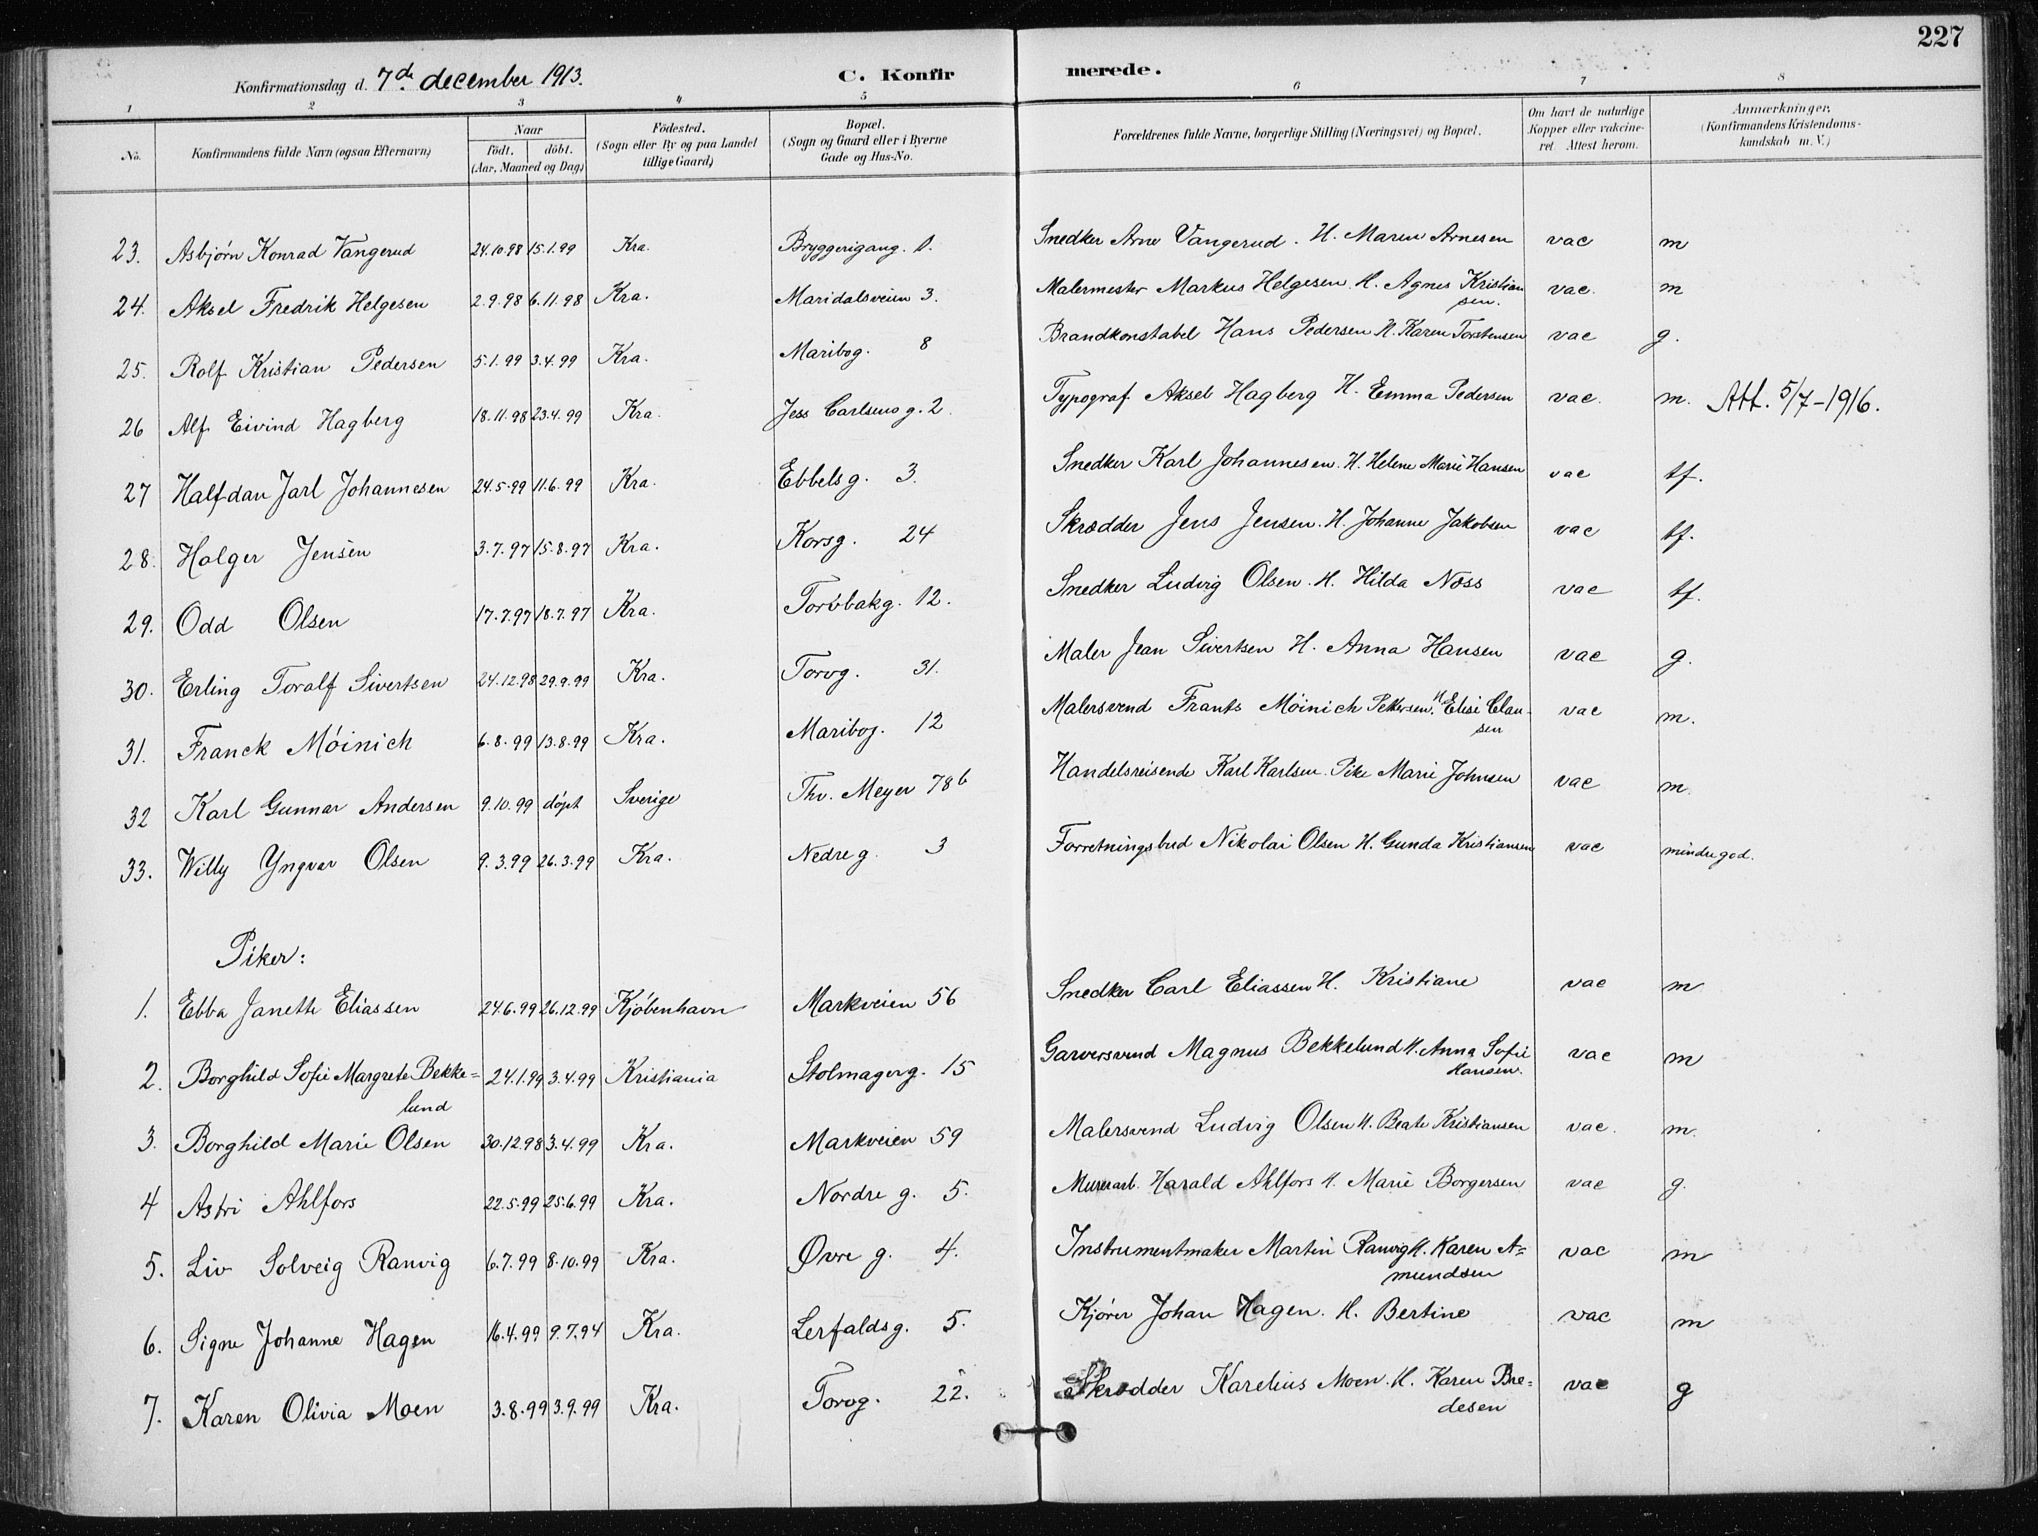 227
Konfirmationsdag d. 7de december 1913. C. Konfirmerede.
1 2 3 4 5 6 7 8
No. Konfirmandens fulde Navn (ogsaa Efternavn) Naar födt. döbt. (Aar, Maaned og Dag) Födested. (Sogn eller By og paa Landet tillige Gaard) Bopæl. (Sogn og Gaard eller i Byerne Gade og Hus-No. Forældrenes fulde Navne, borgerlige Stilling (Næringsvei) og Bopæl. Om havt de naturlige Kopper eller vakcineret. Attest herom. Anmærkninger. (Konfirmandens Kristendomskundskab m. V.)
23. Asbjørn Konrad Vangerud 24.10.98 15.1.99 Kra. Bryggerigang. 1. Snedker Arne Vangerud. H. Maren Arnesen vac m
24. Aksel Fredrik Helgesen 2.9.98 6.11.98 Kra. Maridalsveien 3. Malermester Markus Helgesen H. Agnes Kristiansen. vac. m
25. Rolf Kristian Pedersen 5.1.99 3.4.99 Kra. Maribog. 8 Brandkonstabel Hans Pedersen H. Karen Torstensen vac g.
26 Alf Eivind Hagberg 18.11.98 23.4.99 Kra. Jess Carlsens g. 2. Typograf Aksel Hagberg H. Emma Pedersen vac. m. Att. 5/7-1916.
27 Halfdan Jarl Johannesen 24.5.99 11.6.99 Kra. Ebbelsg. 3. Snedker Karl Johannesen. H. Helene Marie Hansen vac tf.
28. Holger Jensen 3.7.97 15.8.97 Kra. Korsg. 24 Skrædder Jens Jensen. H. Johanne Jakobsen vac tf.
29. Odd Olsen 17.7.97 18.7.97 Kra. Torvbakg. 12. Snedker Ludvig Olsen. H. Hilda Næss vac tf.
30. Erling Toralf Sivertsen 24.12.98 29.9.99 Kra. Torvg. 31. Maler Jean Sivertsen H. Anna Hansen vac g.
31. Franck Möinich 6.8.99 13.8.99 Kra. Maribog. 12 Malersvend Frants Möinich Pettersen. H Elisi Clausen vac m.
32 Karl Gunnar Andersen 9.10.99 döpt Sverige Thv. Meyer 78 b Handelsreisende Karl Karlsen. Pike Marie Johnsen vac m.
33. Willy Yngvar Olsen 9.3.99 26.3.99 Kra. Nedre g. 3 Forretningsbud Nikolai Olsen H. Gunda Kristiansen vac mindre god.
Piker:
1. Ebba Janette Eliassen 24.6.99 26.12.99 Kjøbenhavn Markveien 56 Snedker Carl Eliassen H. Kristiane vac m
2. Borghild Sofie Margrete Bekkelund 24.1.99 3.4.99 Kristiania Stolmagerg. 15 Garversvend Magnus Bekkelund H. Anna Sofie Hansen. vac m
3. Borghild Marie Olsen 30.12.98 3.4.99 Kra. Markveien 59 Malersvend Ludvig Olsen H. Beate Kristiansen vac. m.
4 Astri Ahlfors 22.5.99 25.6.99 Kra. Nordre g. 5. Murerarb. Harald Ahlfors H. Marie Borgersen vac g.
5. Liv Solveig Ranvig 6.7.99 8.10.99 Kra. Øvre g. 4. Instrumentmaker Martin Ranvig H. Karen Amundsen vac m
6. Signe Johanne Hagen 16.4.99 9.7.94 Kra. Lerfaldsg. 5. Kjörer Johan Hagen. H. Bertine vac m
7. Karen Olivia Moen 3.8.99 3.9.99 Kra. Torvg. 22. Skrædder Karelius Moen. H. Karen Bredesen vac g